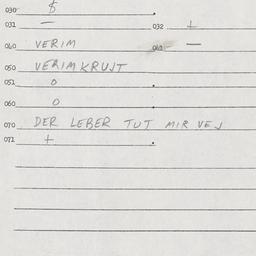 030 $
031 — 032 +
040 VERIM 041 —
050 VERIMKRUJT
051 0
060 0
070 DER LEBER TUT MIR VEJ
071 +